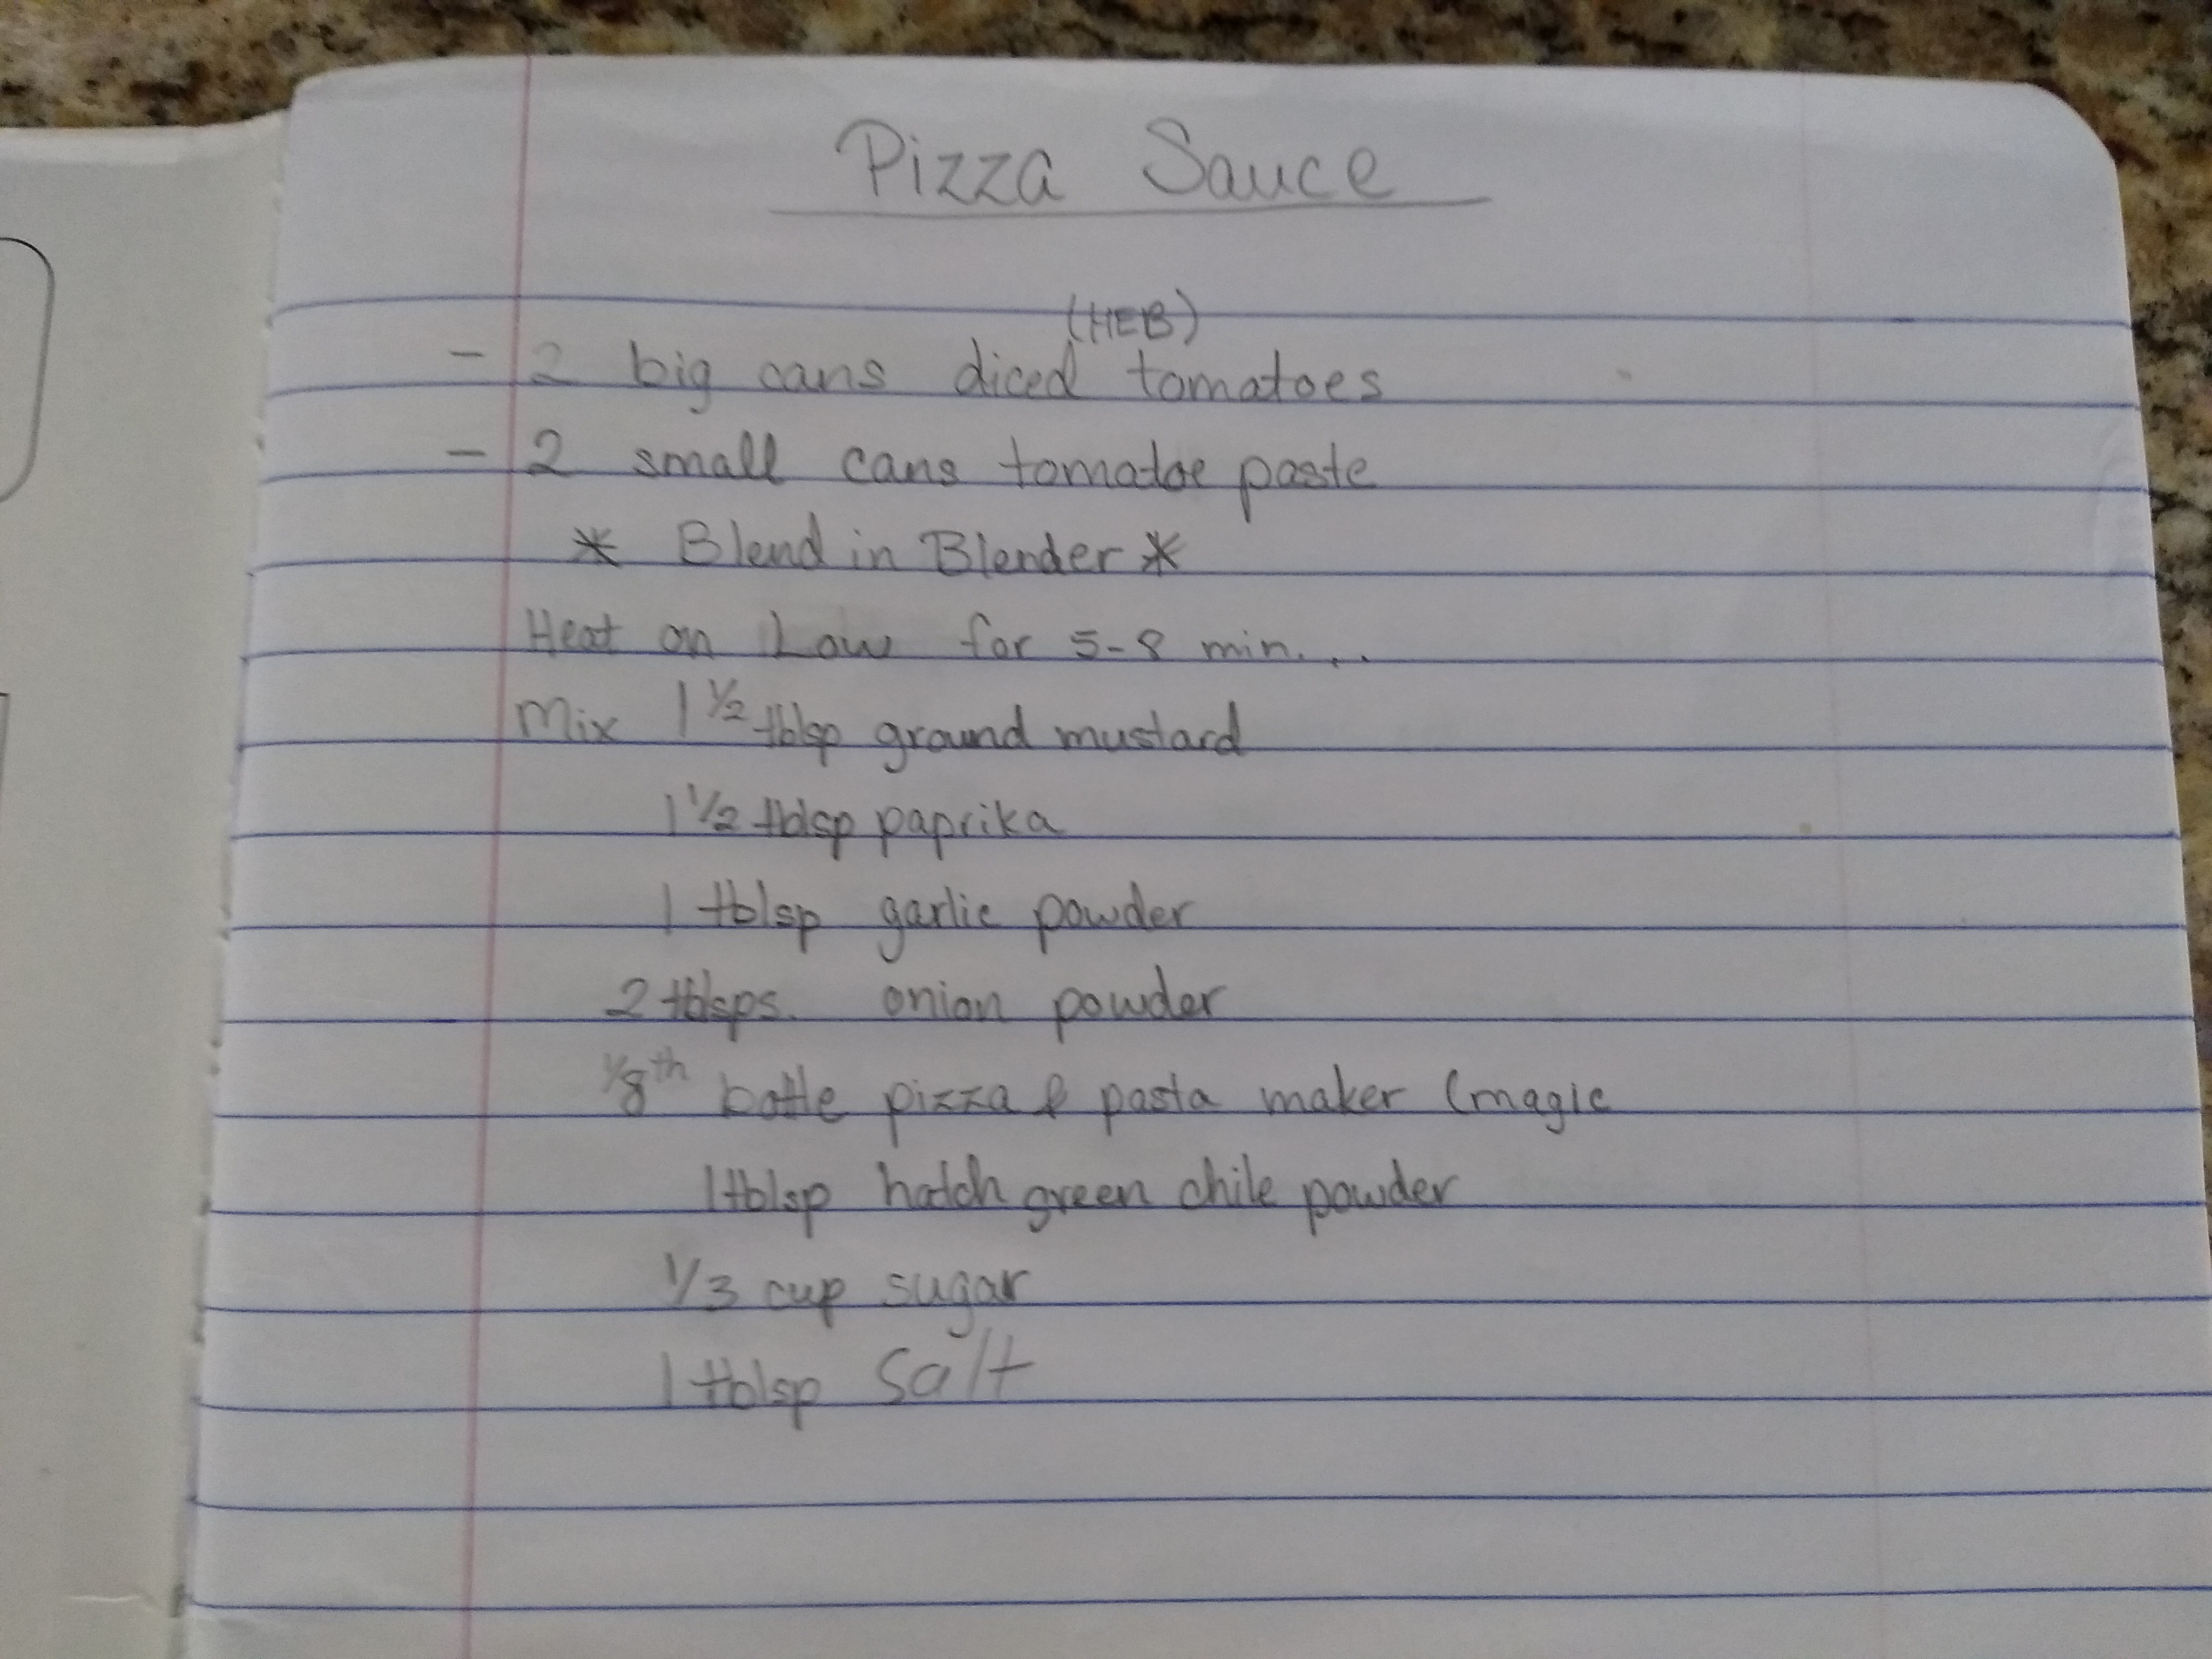 Pizza Sauce
(HEB)
- 2 big cans diced tomatoes
- 2 small cans tomatoe paste
* Blend in Blender *
Heat on Low for 5-8 min...
Mix 1 1/2 tblsp ground mustard
1 1/2 tblsp paprika
1 tblsp garlic powder
2 tblsps. onion powder
1/8th bottle pizza & pasta maker (magic
1 tblsp hatch green chile powder
1/3 cup sugar
1 tblsp Salt